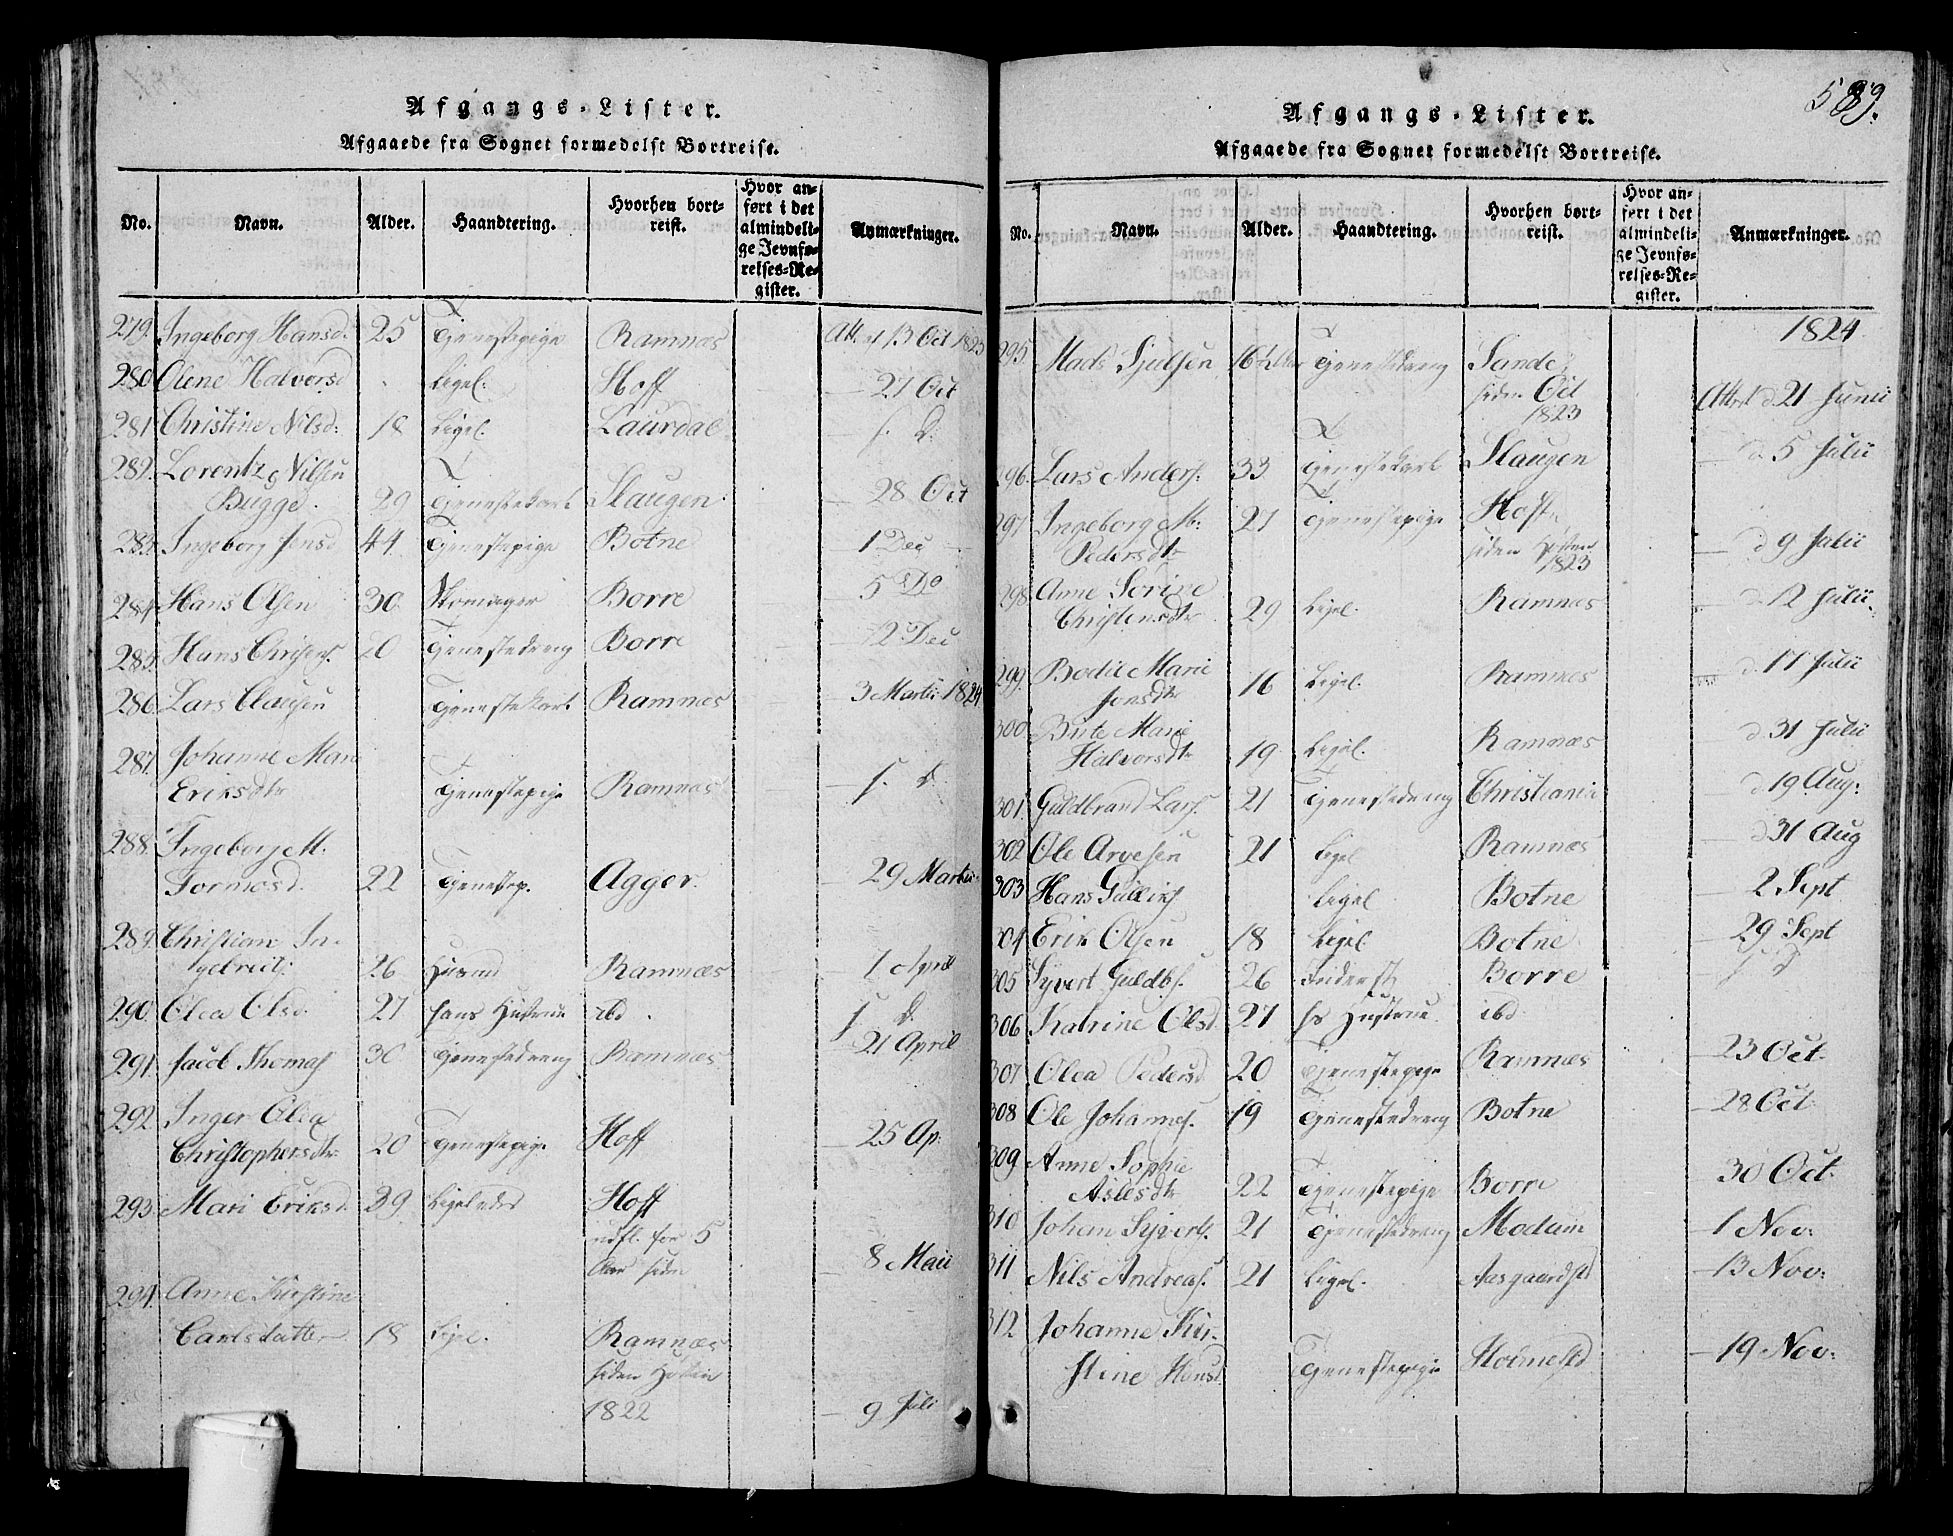 Afgangs-Lister.
Afgaaede fra Sognet formedelst Bortreise.
No. Navn. Alder. Haandtering. Hvorhen bort-reist. Hvor an-ført i det almindeli-ge Jevnfø-relses-Re-gister. Anmærkninger.
279. Ingeborg Hansd. 25 Tjenestepige Ramnæs Att. d 13 Oct 1823
280 Olene Halvorsd Ligel. Hoff 27 Oct
281 Christine Nilsd: 18 Ligel. Laurdal s. D.
282. Lorentz Nilsen
Bugge. 29 Tjenestekarl Slaugen 28 Oct
283. Ingeborg Jensd 44. Tjenestepige Botne 1 Dec
284 Hans Olsen 30. Skomager Borre 5 Do
285. Hans Chrisens. 20 Tjenestedreng Borre 2 Dec
286. Lars Clausen Tjenestekarl Ramnæs 3 Martii 1824
287. Johanne Mari
Eriksdtr Tjenestepige Ramnæs s. D.
288. Ingeborg M.
Tormosd. 22 Tjenestep. Agger. 29 Martii
289. Christian In-
gebrets. 26 Husmd Ramnæs 7 April
290. Olea Olsd. 27 hans Hustrue ibd. s. D.
291. Jacob Thomas 30 Tjenestedreng Ramnæs 21 April
292. Inger Olea
Christophersdtr 20 Tjenestepige Hoff 25 Ap:
293. Mari Eriksd. 39. Ligeledes Hoff
for 5
Aar siden 8 Maii
294. Anne Kirstine
Carlsdatter 18 Ligel. Ramnæs
siden Høsten
1822 9 Juli
589.
Afgangs-Lister.
Afgaaede fra Sognet formedelst Bortreise.
No. Navn. Alder. Haandtering. Hvorhen bort-reist. Hvor an-ført i det almindeli-ge Jevnfø-relses-Re-gister. Anmærkninger.
1824
295. Mads Sjulsen 16 Tjenestedreng Sande
siden Oct
1823 Att. d 21 Junii
296. Lars Anders. 33 Tjenestekarl Slaugen d 5 Julii
297 Ingeborg M: 27 Tjenestepige Hoff
Pedersdtr siden Høsten
1823 d 9 Julii
298. Anne Sorine
Christensdtr 29 Ligel. Ramnæs d 12 Julii
299. Bodil Marie
Jonsdtr 16 Ligel. Ramnæs d 17 Julii
300 Birte Marie
Halvorsdtr 19 Ligel. Ramnæs d 31 Julii
301. Guldbrand Lars. 21 Tjenestedreng Christiania d 19 Aug:
302 Ole Arvesen 21 Ligel Ramnæs d 31 Aug
303 Hans Gulliks Ligel Botne 2 Sept
304 Erik Olsen 18 Ligel Botne 29 Sept
305 Syvert Guldbs. 26 Inderst Borre s D
306 Katrine Olsd. 27 hs Hustrue. ibd
307 Olea Pedersd. 20 Tjenestepige Ramnæs 23 Oct.
308 Ole Johannes. 19 Tjenestedreng Botne 28 Oct.
309 Anne Sophie
Aslesdtr 22 Tjenestepige Borre 30 Oct.
310 Johan Syverts. 21 Tjenestedreng Modum 1 Nov:
311 Nils Andreas. 21 Ligel. Aasgaardstd 13 Nov:
312 Johanne Kir-
stine Hansd. Tjenestepige Holmestd 19 Nov: